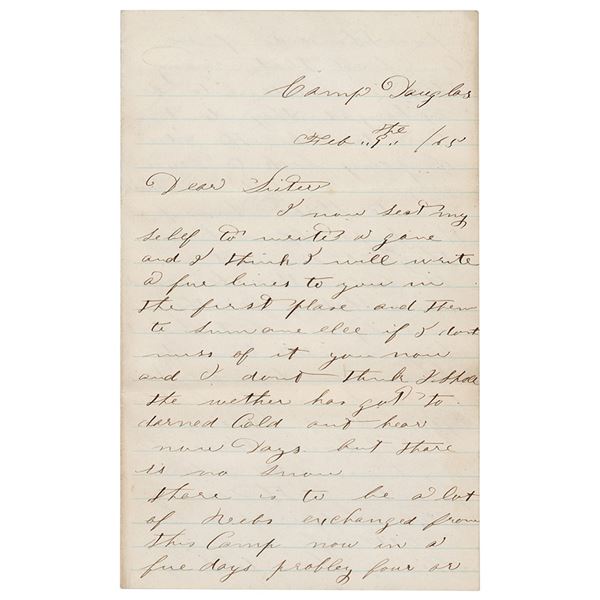 Camp Douglas
Feb "9" the /65
Dear Sister
I now seat my
self to write a gane
and I think I will write
a fue lines to you in
the first plase and then
to sum one else if I dont
miss of it you now
and I dont think I shall
the wether has got to
darned Cold out hear
now Days but thare
is no snow
thare is to be a lot
of Rebs exchanged from
this Camp now in a
fue days probley four or